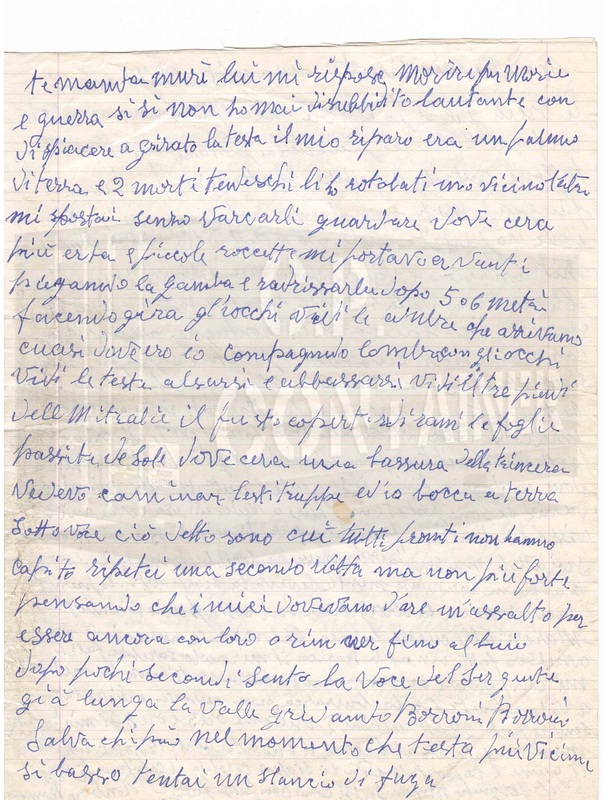 te manda murì lui mi rispose morire per morie
e guerra si si non ho mai disubbidito lautante con
dispiacere a girato la testa il mio riparo era un palmo
di terra e 2 morti tedeschi li ho rotolati uno vicino
mi spostai senza varcarli guardare dove cera
più erba e piccole roccette mi portavo avanti
piegando la gamba e radrissarla dopo 5 o 6 metri
facendo gira gli occhi vidi le ombre che arrivano
cuasi dove ero io compagnando lombra con gli occhi
vidi la testa alsarsi e abbassarsi vidi il tre piedi
dell Mitralie il fusto coperto di rami le foglie
passite de sole dove cera una bassura della trincera
vedevo caminar testi truppe ed io bocca a terra
sotto voce ciò detto sono cui tutti pronti non hanno
capito ripetei una seconda volta ma non più forte
pensando che i miei dovevano dare un assalto per
essere ancora con loro o rimaner fino al buio
dopo pochi secondi sento la voce del sergente
già lunga la valle gridando Borroni Borroni
Salva chi può nel momento che testa più vicina
si basso tentai un slancio di fuga